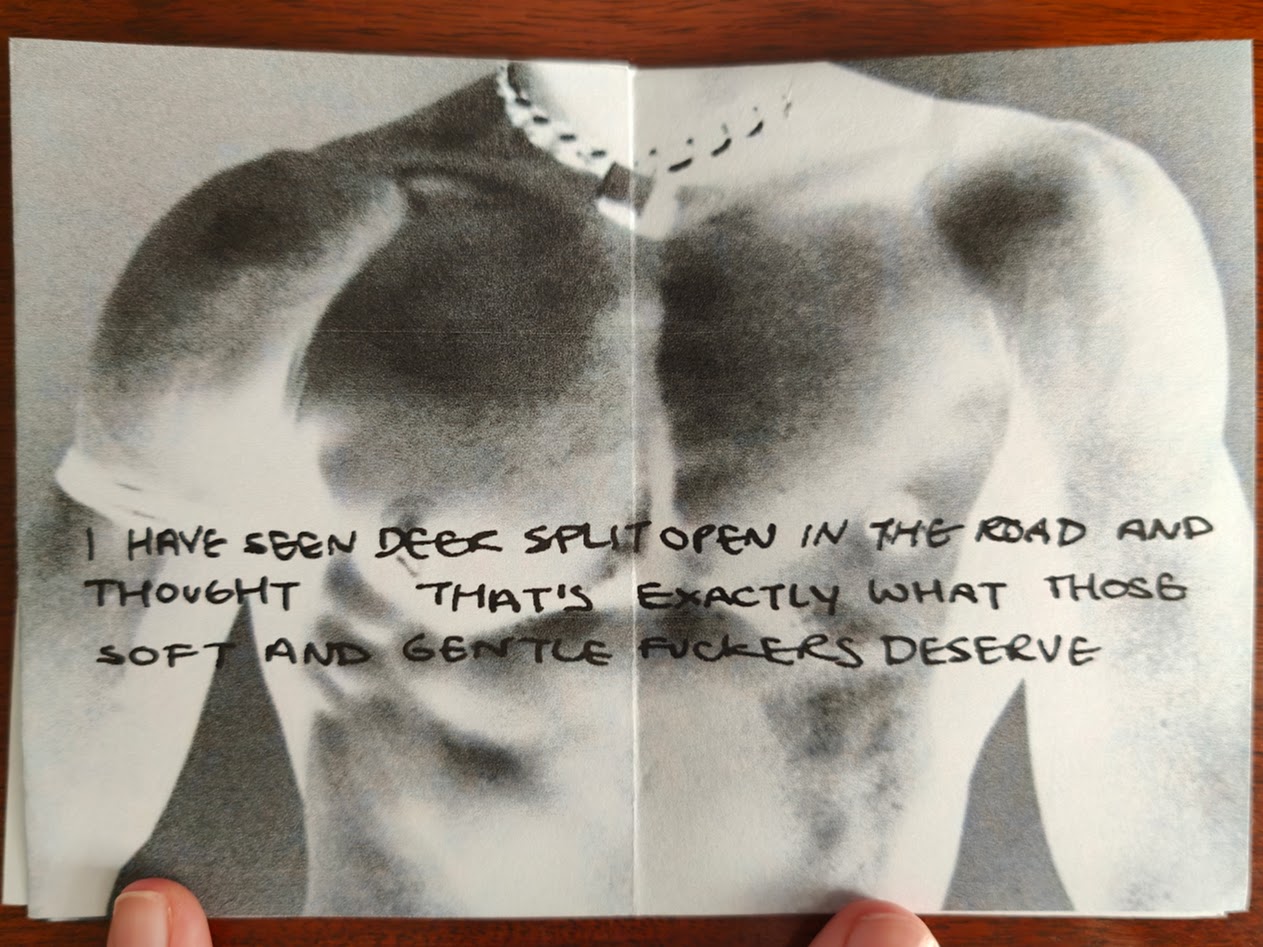 I HAVE SEEN DEER SPLIT OPEN IN THE ROAD AND
THOUGHT THAT'S EXACTLY WHAT THOSE
SOFT AND GENTLE FUCKERS DESERVE